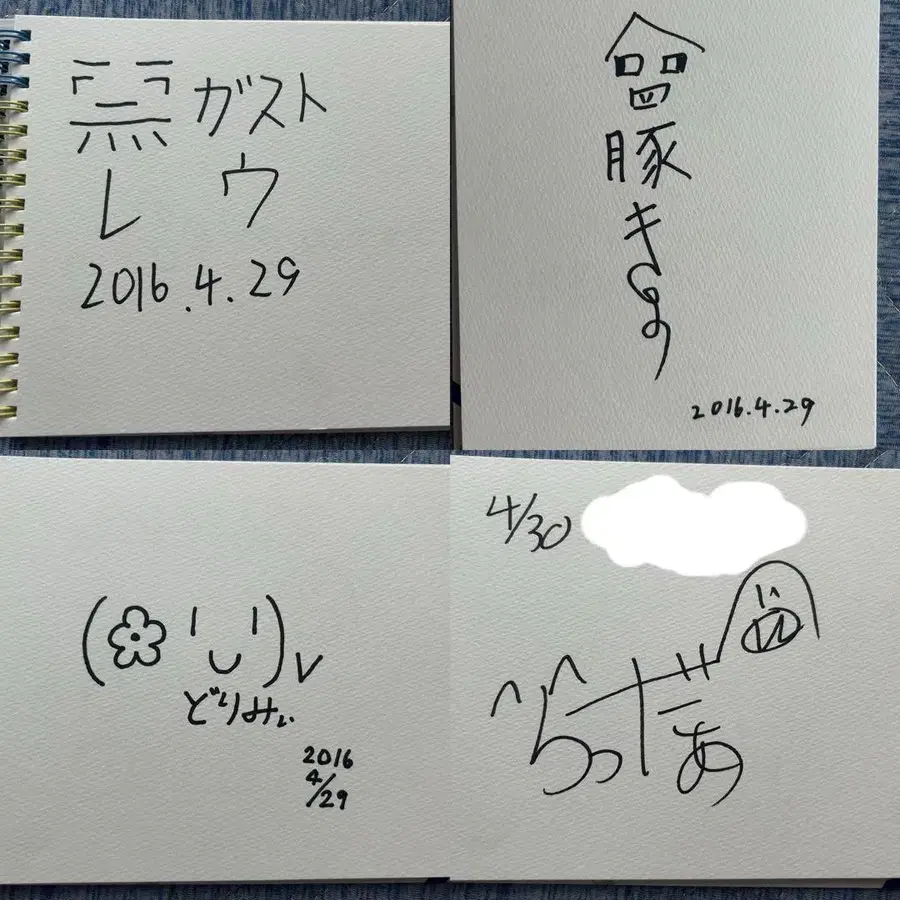 ガスト
レ ウ
2016.4.29
豚き
2016.4.29
(✿ ╹◡╹)v
どりみぃ
2016
4/29
4/30
らっだぁ